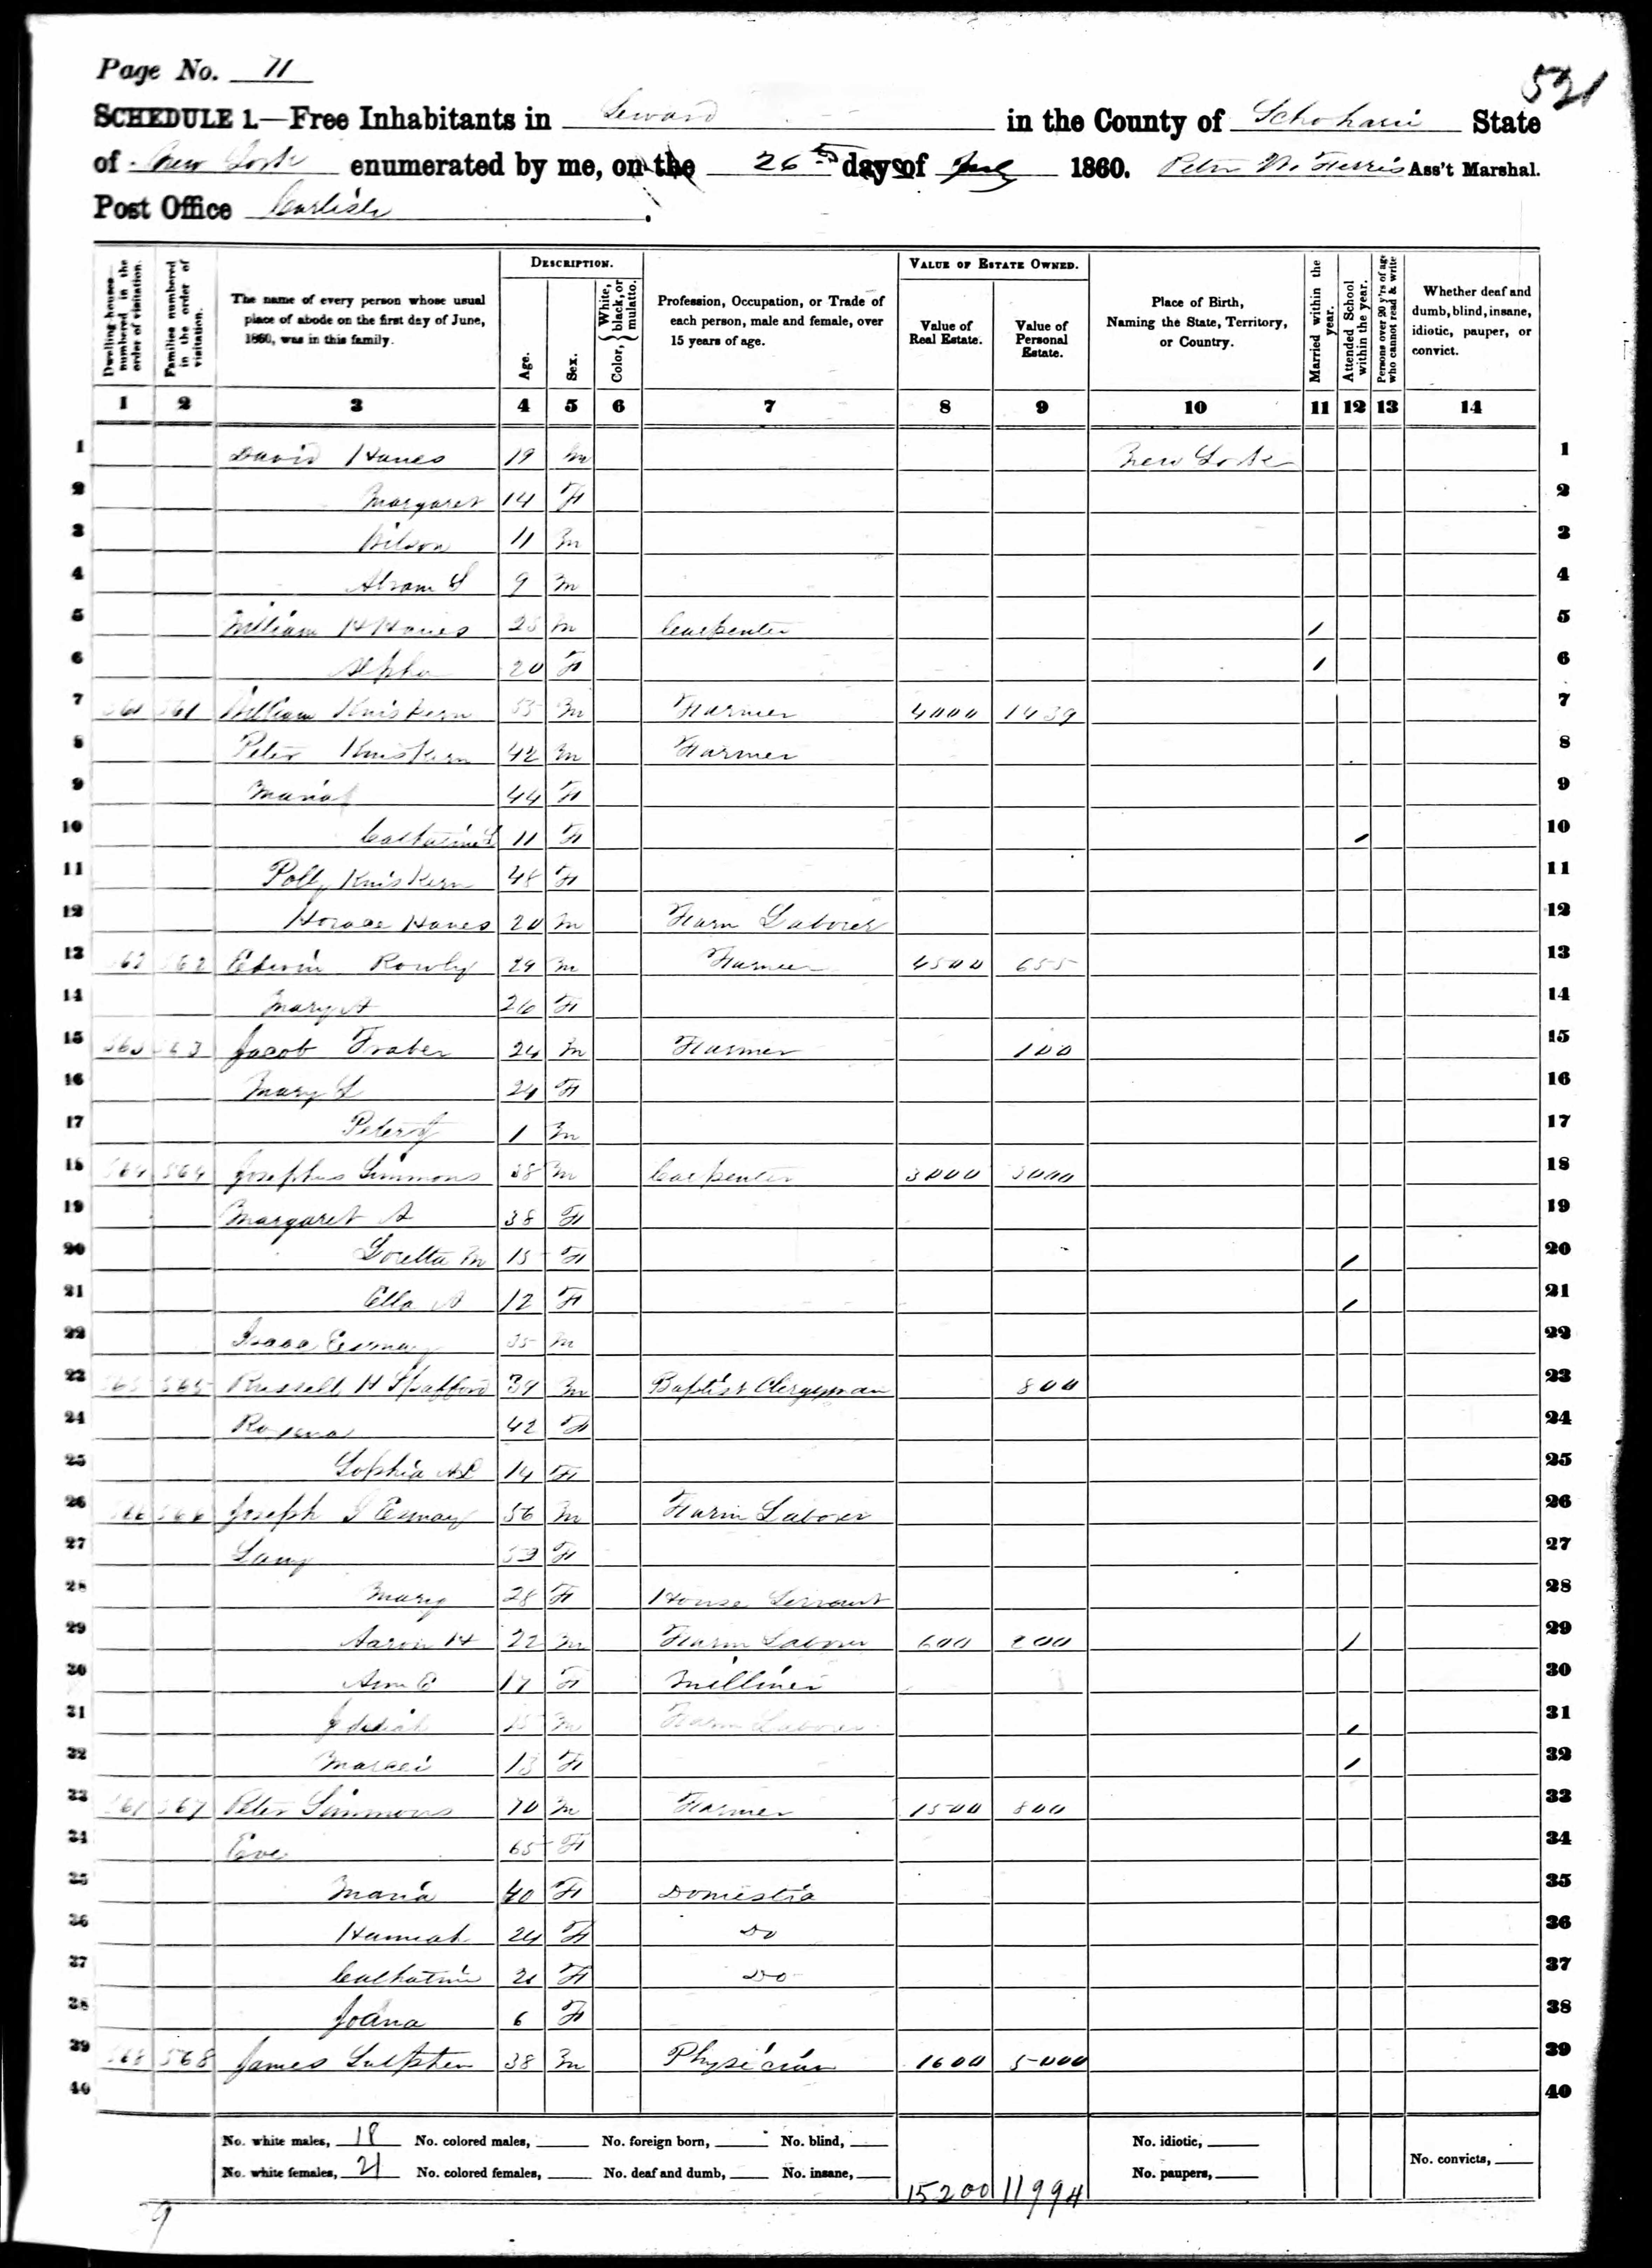 Page No. 71
531
SCHEDULE 1.—Free Inhabitants in Seward in the County of Schoharie State
of New York enumerated by me, on the 26th day of July 1860. Peter Ferris Ass't Marshal.
Post Office Carlisle.
Dwelling-houses—numbered in the order of visitation.
Families numbered in the order of visitation.
The name of every person whose usual place of abode on the first day of June, 1860, was in this family.
DESCRIPTION.
Age.
Sex.
Color, { White, black, or mulatto.
Profession, Occupation, or Trade of each person, male and female, over 15 years of age.
VALUE OF ESTATE OWNED.
Value of Real Estate.
Value of Personal Estate.
Place of Birth, Naming the State, Territory, or Country.
Married within the year.
Attended School within the year.
Persons over 20 y'rs of age who cannot read & write
Whether deaf and dumb, blind, insane, idiotic, pauper, or convict.
1 2 3 4 5 6 7 8 9 10 11 12 13 14
1 David Hanes 19 m New York 1
2 Margaret 14 F 2
3 Wilson 11 m 3
4 Abram 9 m 4
5 William H Hanes 25 m Carpenter / 5
6 20 F / 6
7 561 561 William Kniskern 55 m Farmer 4000 1439 7
8 Peter Kniskern 42 m Farmer 8
9 Maria 44 F 9
10 Catharine 11 F / 10
11 Polly Kniskern 48 F 11
12 Horace Hanes 20 m Farm Laborer 12
13 562 562 Edwin Rowly 29 m Farmer 4500 655 13
14 Mary A 26 F 14
15 563 563 Jacob Traber 24 m Farmer 100 15
16 Mary 24 F 16
17 Peter 1 m 17
18 564 564 Josephus Simmons 38 m Carpenter 3000 3000 18
19 Margaret A 38 F 19
20 Loretta M 15 F / 20
21 Ella A 12 F / 21
22 Isaac 35 m 22
23 565 565 Russell H Spafford 39 m Baptist Clergyman 800 23
24 Roxena 42 F 24
25 Sophia 14 F 25
26 566 566 Joseph 56 m Farm Laborer 26
27 Lany 53 F 27
28 Mary 28 F House Servant 28
29 Aaron H 22 m Farm Laborer 600 200 / 29
30 Ann E 17 F Milliner 30
31 Jedidiah 15 m Farm Laborer / 31
32 13 F / 32
33 567 567 Peter Simmons 70 m Farmer 1500 800 33
34 Eve 65 F 34
35 Maria 40 F Domestic 35
36 Hannah 24 F Do 36
37 Catharine 21 F Do 37
38 Joana 6 F 38
39 568 568 James Sutphen 38 m Physician 1600 5000 39
40 40
No. white males, 18 No. colored males, No. foreign born, No. blind, No. idiotic,
No. white females, 21 No. colored females, No. deaf and dumb, No. insane, No. paupers, No. convicts,
15200 11994
9